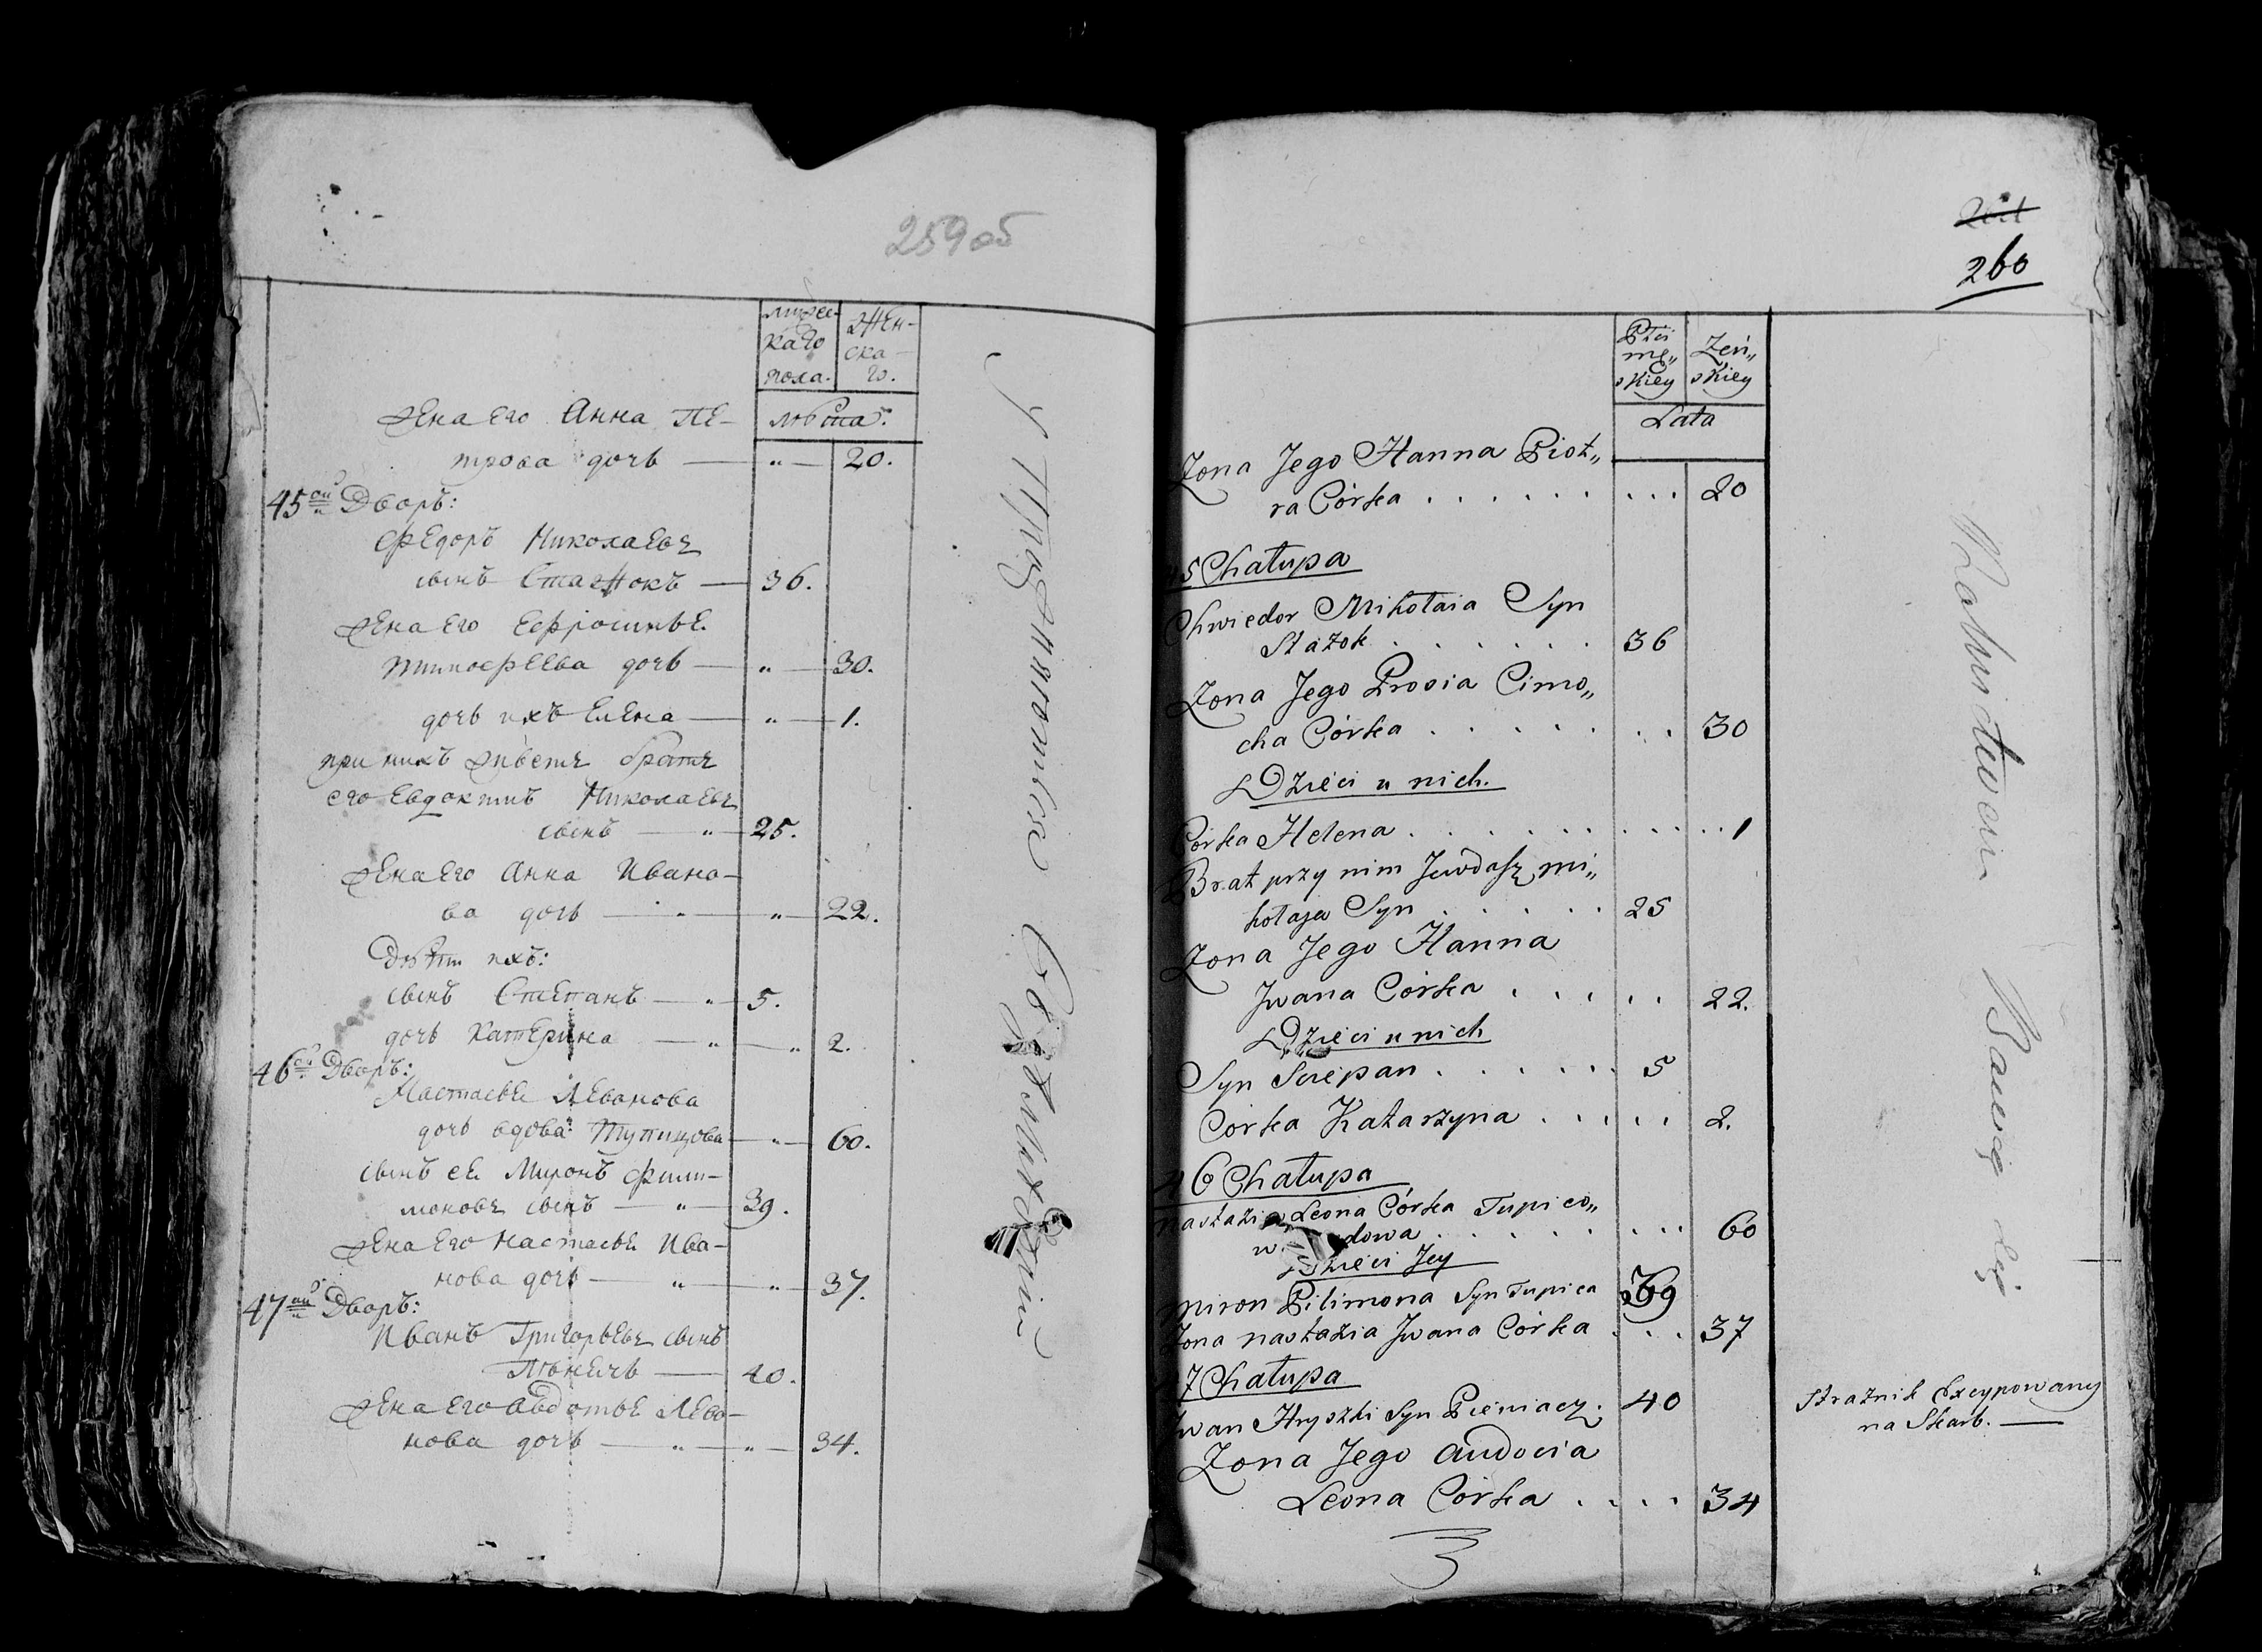 259 об
мужес-
каго
пола.
Жен-
ска-
го.
лѣта.
Жена Его Анна Пе-
трова дочь — „ — 20.
45ой Дворъ:
Федоръ Николаевъ
сынъ Стажокъ — 36.
Жена Его Ефросинье
тимофеева дочь — „ — 30.
дочь ихъ Елена — „ — 1.
при нихъ живетъ братъ
его Евдокимъ Николаевъ
сынъ — „ — 25.
Жена Его Анна Ивано-
ва дочь — „ — „ — 22.
Дѣти ихъ:
сынъ Степанъ — „ — 5.
дочь Катерина — „ — „ 2.
46ой Дворъ:
Настасье Леванова
дочь вдова Тупицова — „ — 60.
сынъ ее Миронъ Фили-
моновъ сынъ — „ — 39.
Жена Его Настасье Ива-
нова дочь — „ — „ — 37.
47ой Дворъ:
Иванъ Григорьевъ сынъ
— 40.
Жена Его Авдотье Лева-
нова дочь — „ — „ — 34.
260
Płci
mę„
skiey
Żeń„
skiey
Lata
Żona Jego Hanna Piot„
ra Córka . . . . . . . . . 20
5 Chałupa
Chwiedor Mikołaia Syn
Stażok . . . . . . 36
Żona Jego Prosia Cimo„
cha Córka . . . . . . . 30
Dzieci u nich.
Córka Helena . . . . . . . . . . . 1
Brat przy nim Jewdasz mi„
kołaja Syn . . . . . 25
Żona Jego Hanna
Jwana Córka . . . . . . 22.
Dzieci u nich
Syn Sciepan . . . . . . 5
Córka Katarzyna . . . . . 2.
46 Chałupa
nastazia Leona Córka Tupico„
wdowa . . . . . . . . 60
Dzieci Jey
Miron Pilimona Syn Tupica 39
Żona nastazia Jwana Córka . . . 37
7 Chałupa
Jwan Hryszki Syn Pieniacz . 40
Strażnik Excypowany
na Skarb. —
Żona Jego Audocia
Leona Córka . . . . 34